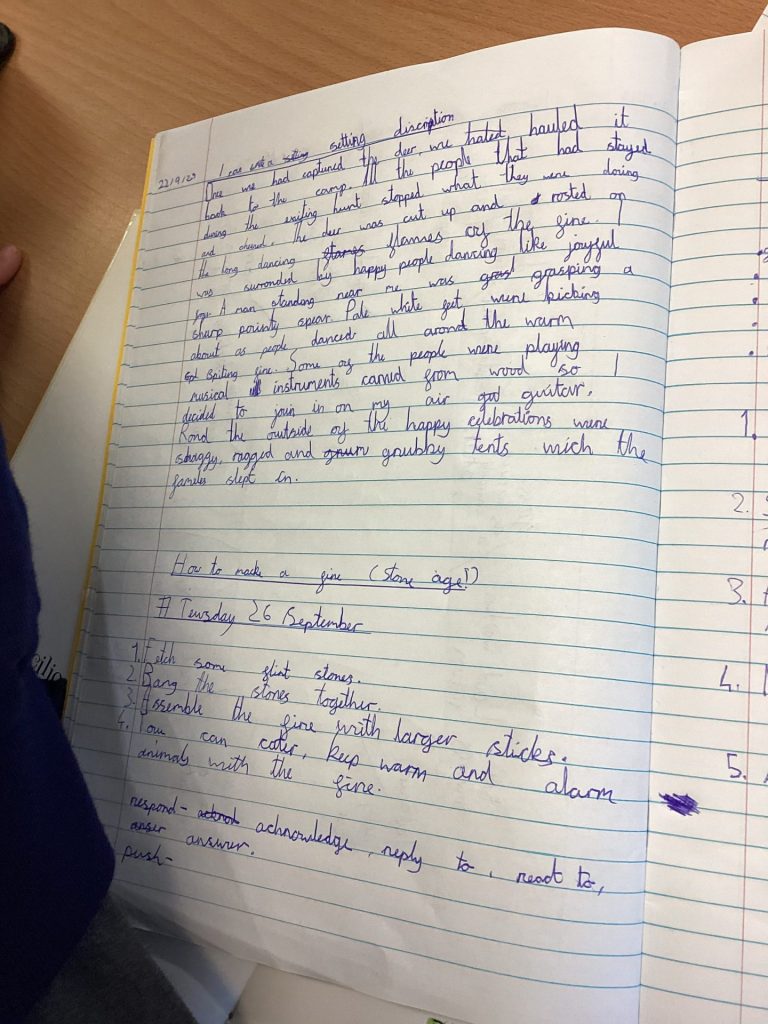 22/9/23 I can write a setting setting discription
Once we had captured the deer, we hated hauled it
back to the camp. All the people that had stayed
during the exiting hunt stopped what they were doing
and cheered. The deer was cut up and rosted on
the long, dancing flames of the fire. I
was surronded by happy people dancing like joyful
A man standing near me was grasping a
sharp pointy spear. Pale white feet were kicking
about as people danced all arond the warm
spiting fire. Some of the people were playing
musical instruments carved from wood so I
decided to join in on my air guitar.
Rond the outside of the happy celebrations were
shaggy, ragged and grubby tents wich the
slept in.
How to make a fire (stone age!)
Tuesday 26 September
1. Fetch some flint stones.
2. Bang the stones together.
3. Assemble the fire with larger sticks.
4. You can cater, keep warm and alarm
animals with the fire.
respond- acknowledge, reply to, react to,
anser answer.
push-
1.
2.
3.
4.
5.